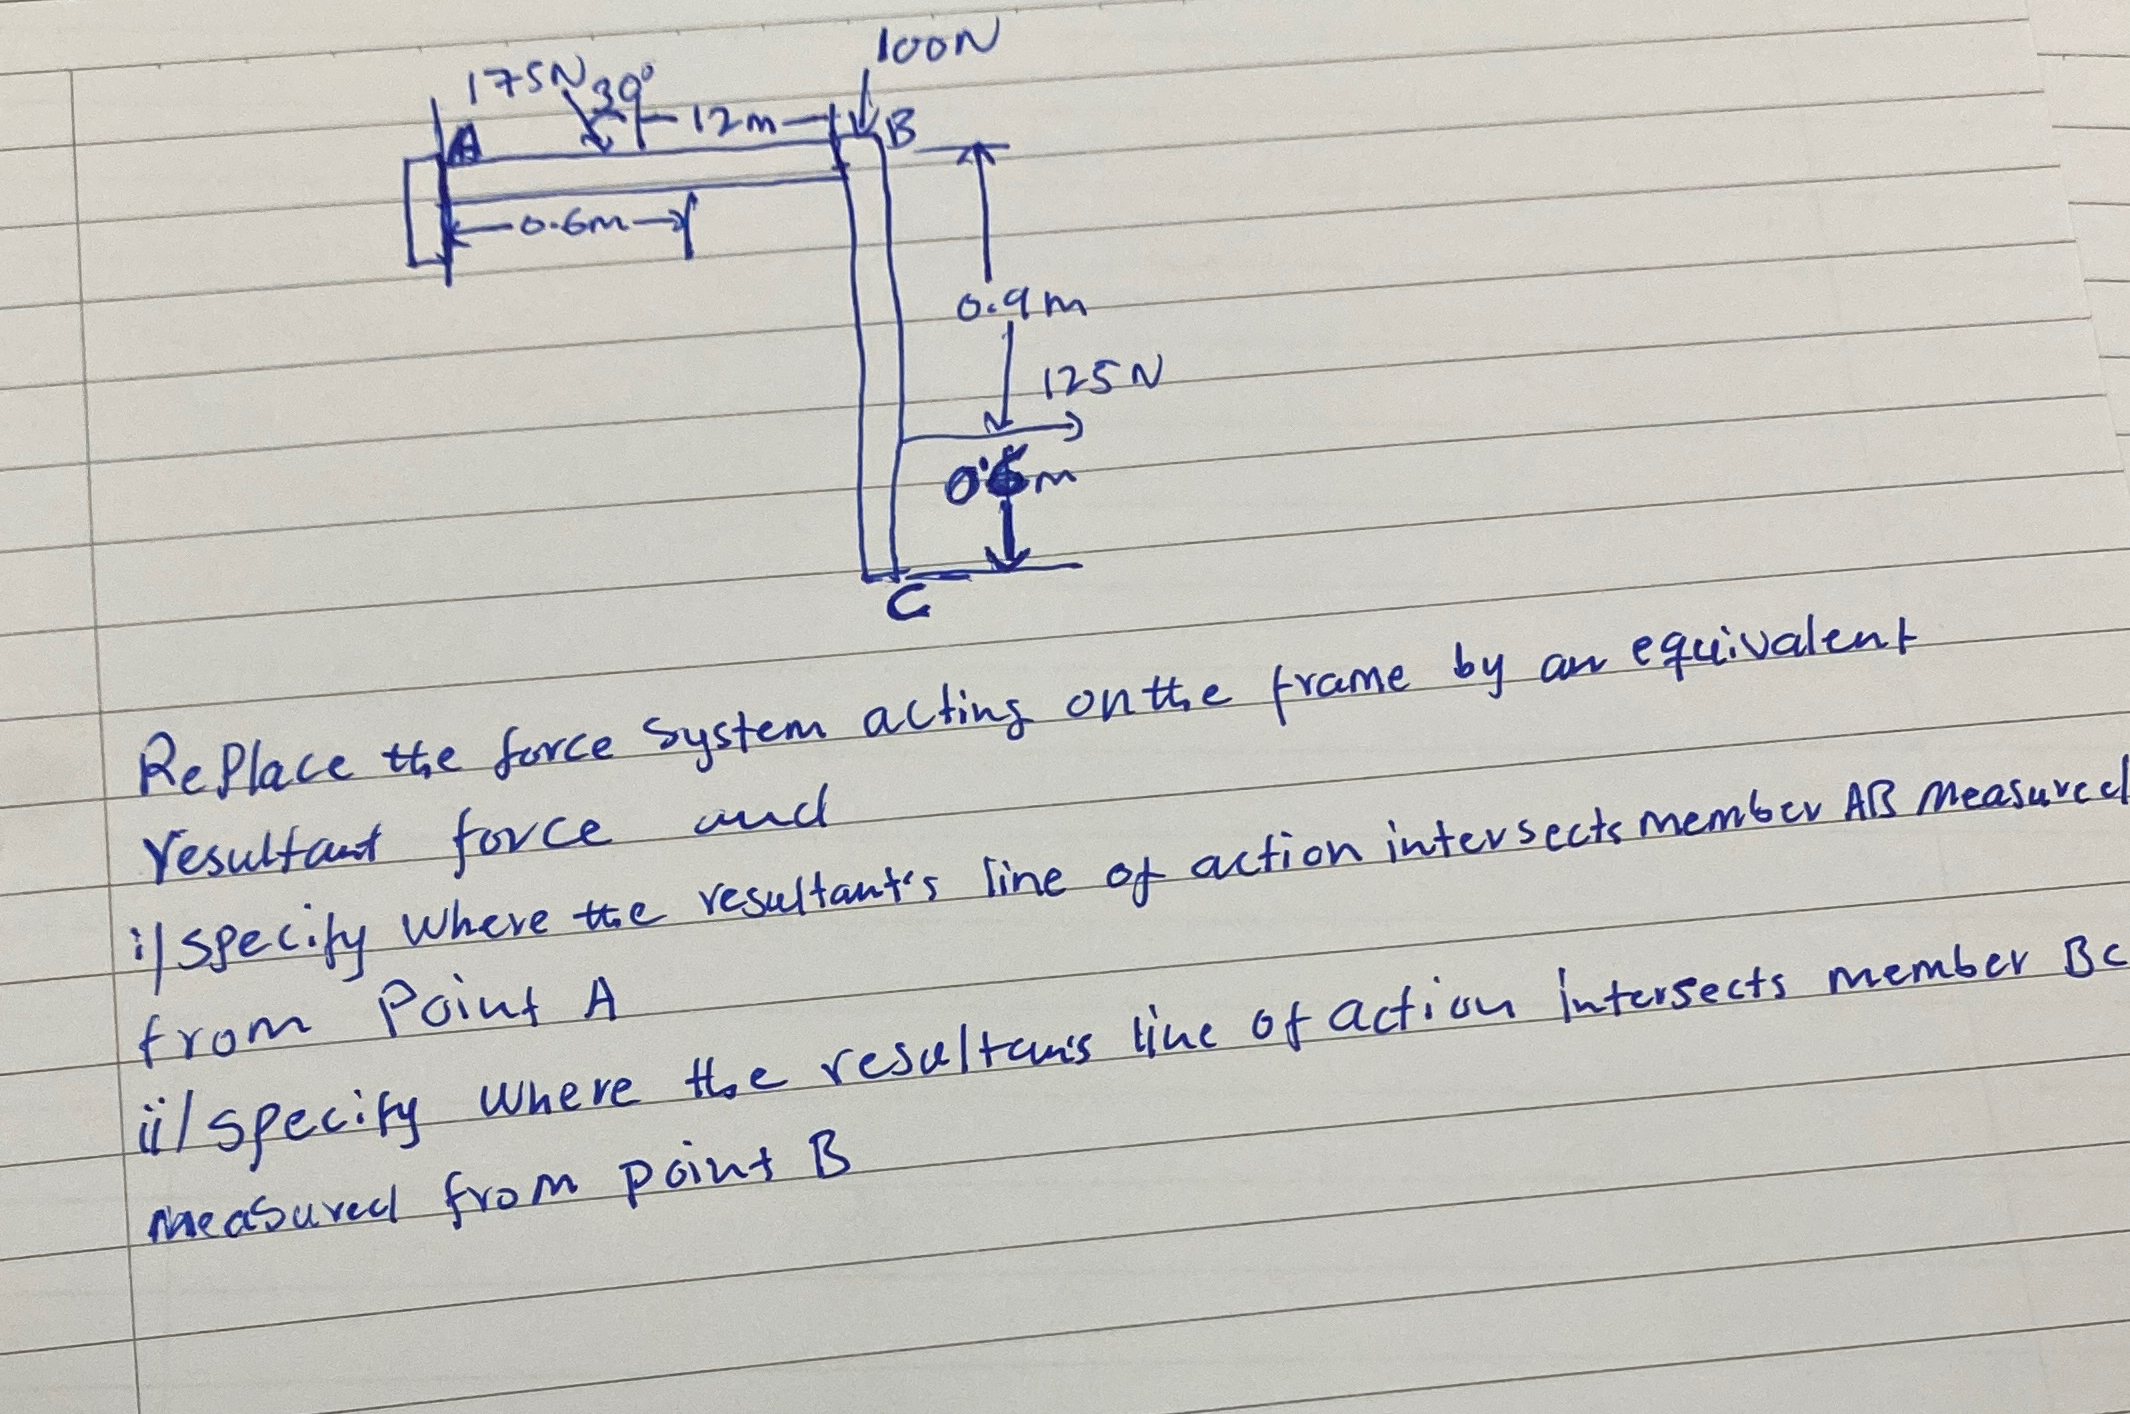 100N
175N 30° 12m B
A
0.6m
0.9m
125N
m
C
Replace the force system acting on the frame by an equivalent
resultant force and
i/ specify where the resultant's line of action intersects member AB measured
from Point A
ii/ specify where the resultan's line of action intersects member BC
measured from point B